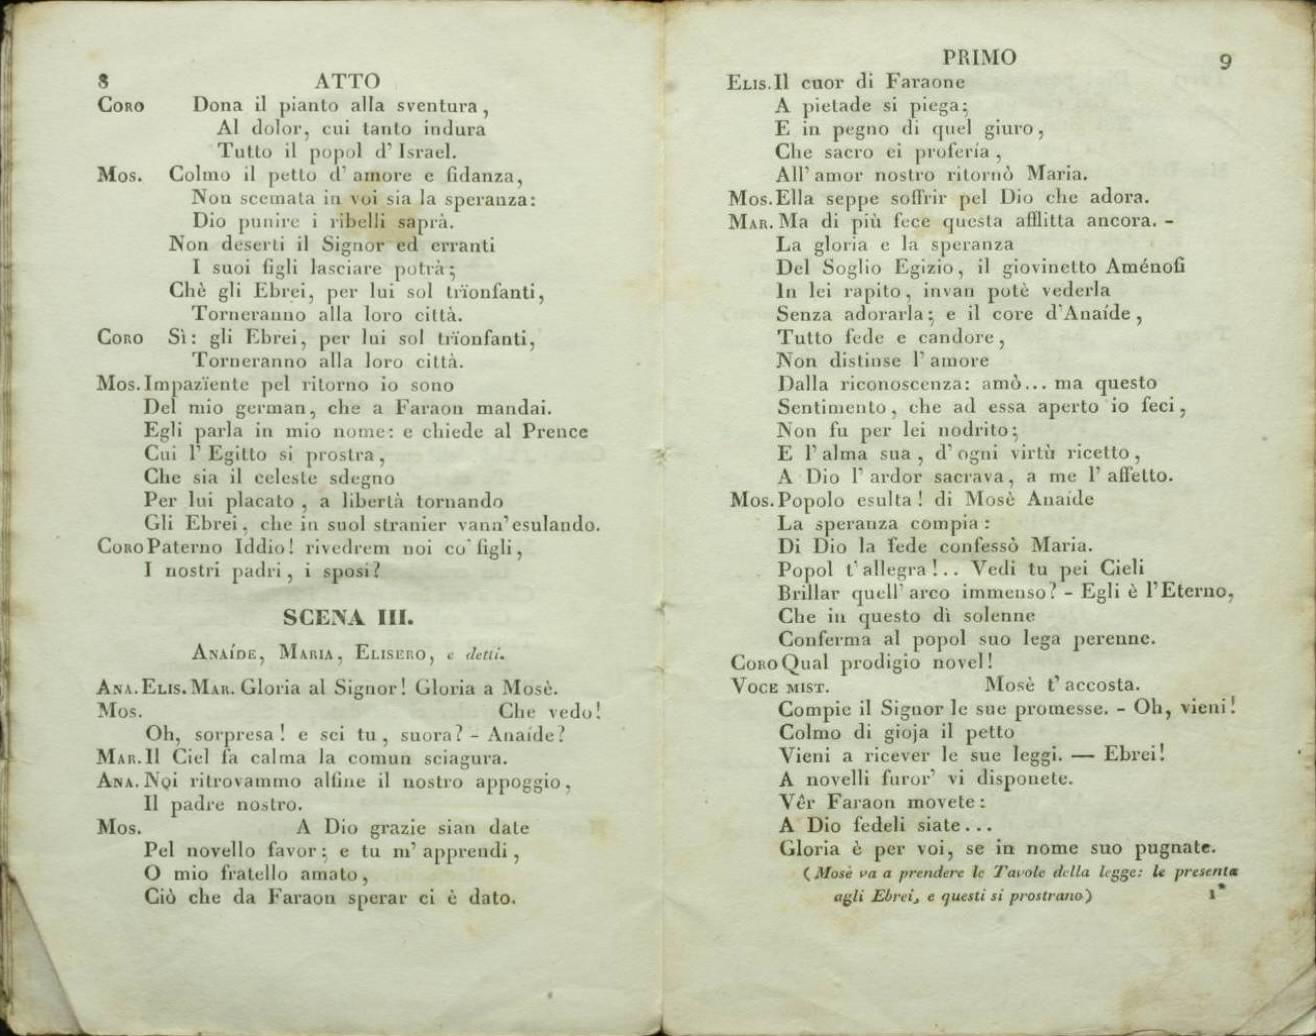 8 ATTO
CORO Dona il pianto alla sventura,
Al dolor, cui tanto indura
Tutto il popol d'Israel.
MOS. Colmo il petto d'amore e fidanza,
Non scemata in voi sia la speranza:
Dio punire i ribelli saprà.
Non deserti il Signor ed erranti
I suoi figli lasciare potrà;
Chè gli Ebrei, per lui sol trïonfanti,
Torneranno alla loro città.
CORO Sì: gli Ebrei, per lui sol trïonfanti,
Torneranno alla loro città.
MOS. Impazïente pel ritorno io sono
Del mio german, che a Faraon mandai.
Egli parla in mio nome: e chiede al Prence
Cui l'Egitto si prostra,
Che sia il celeste sdegno
Per lui placato, a libertà tornando
Gli Ebrei, che in suol stranier vann'esulando.
CORO Paterno Iddio! rivedrem noi co' figli,
I nostri padri, i sposi?
SCENA III.
ANAÍDE, MARIA, ELISERO, e detti.
ANA. ELIS. MAR. Gloria al Signor! Gloria a Mosè.
MOS. Che vedo!
Oh, sorpresa! e sei tu, suora? - Anaíde?
MAR. Il Ciel fa calma la comun sciagura.
ANA. Noi ritrovammo alfine il nostro appoggio,
Il padre nostro.
MOS. A Dio grazie sian date
Pel novello favor; e tu m'apprendi,
O mio fratello amato,
Ciò che da Faraon sperar ci è dato.
PRIMO 9
ELIS. Il cuor di Faraone
A pietade si piega;
E in pegno di quel giuro,
Che sacro ei profería,
All'amor nostro ritornò Maria.
MOS. Ella seppe soffrir pel Dio che adora.
MAR. Ma di più fece questa afflitta ancora. -
La gloria e la speranza
Del Soglio Egizio, il giovinetto Aménofi
In lei rapito, invan potè vederla
Senza adorarla; e il core d'Anaíde,
Tutto fede e candore,
Non distinse l'amore
Dalla riconoscenza: amò... ma questo
Sentimento, che ad essa aperto io feci,
Non fu per lei nodrito;
E l'alma sua, d'ogni virtù ricetto,
A Dio l'ardor sacrava, a me l'affetto.
MOS. Popolo esulta! di Mosè Anaíde
La speranza compia:
Di Dio la fede confessò Maria.
Popol t'allegra!.. Vedi tu pei Cieli
Brillar quell'arco immenso? - Egli è l'Eterno,
Che in questo dì solenne
Conferma al popol suo lega perenne.
CORO Qual prodigio novel!
VOCE MIST. Mosè t'accosta.
Compie il Signor le sue promesse. - Oh, vieni!
Colmo di gioja il petto
Vieni a ricever le sue leggi. — Ebrei!
A novelli furor' vi disponete.
Vêr Faraon movete:
A Dio fedeli siate...
Gloria è per voi, se in nome suo pugnate.
(Mosè va a prendere le Tavole della legge: le presenta
agli Ebrei, e questi si prostrano) 1*